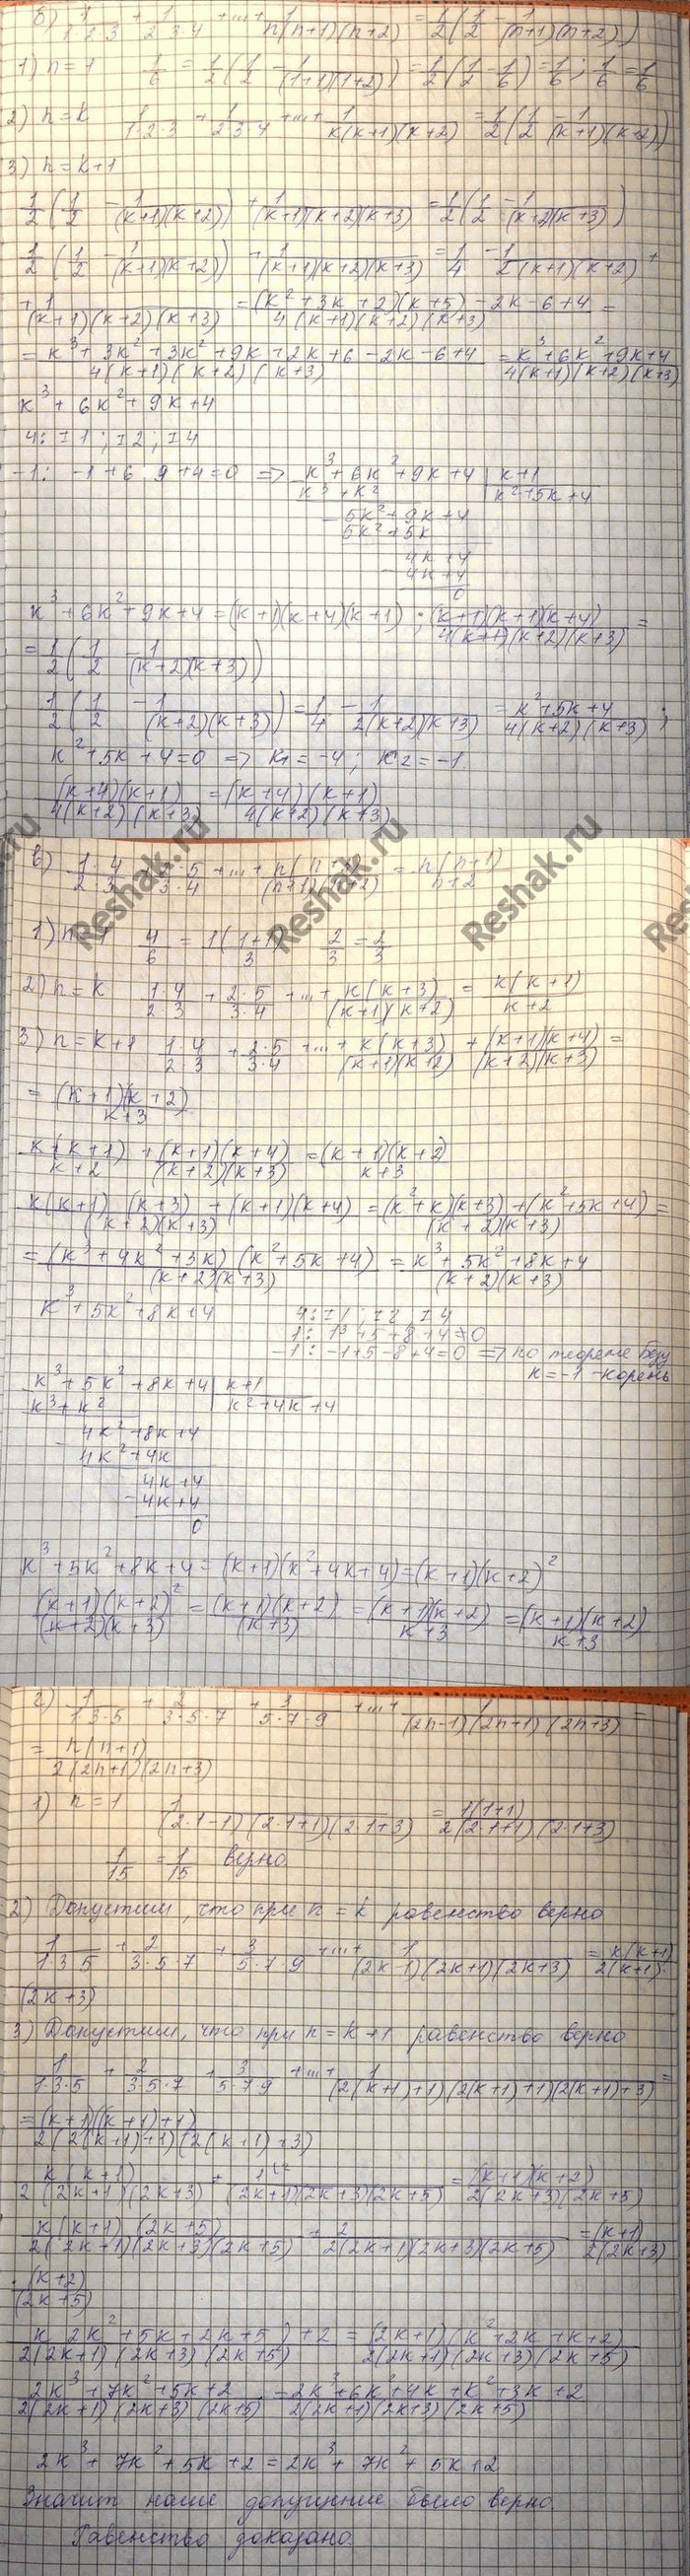 б) 1/(1·2·3) + 1/(2·3·4) + ... + 1/(n(n+1)(n+2)) = 1/2 (1/2 - 1/((n+1)(n+2)))
1) n=1 1/6 = 1/2 (1/2 - 1/((1+1)(1+2))) = 1/2 (1/2 - 1/6) = 1/6 ; 1/6 = 1/6
2) n=k 1/(1·2·3) + 1/(2·3·4) + ... + 1/(k(k+1)(k+2)) = 1/2 (1/2 - 1/((k+1)(k+2)))
3) n=k+1
1/2 (1/2 - 1/((k+1)(k+2))) + 1/((k+1)(k+2)(k+3)) = 1/2 (1/2 - 1/((k+2)(k+3)))
1/2 (1/2 - 1/((k+1)(k+2))) + 1/((k+1)(k+2)(k+3)) = 1/4 - 1/(2(k+1)(k+2)) +
+ 1/((k+1)(k+2)(k+3)) = ((k²+3k+2)(k+3) - 2k - 6 + 4)/(4(k+1)(k+2)(k+3)) =
= (k³+3k²+3k²+9k+2k+6-2k-6+4)/(4(k+1)(k+2)(k+3)) = (k³+6k²+9k+4)/(4(k+1)(k+2)(k+3))
k³+6k²+9k+4
4: ±1; ±2; ±4
-1: -1+6-9+4=0 => k³+6k²+9k+4 | k+1
k³+k² | k²+5k+4
5k²+9k+4
5k²+5k
4k+4
4k+4
0
k³+6k²+9k+4=(k+1)(k+4)(k+1) ; ((k+1)(k+1)(k+4))/(4(k+1)(k+2)(k+3)) =
= 1/2 (1/2 - 1/((k+2)(k+3)))
1/2 (1/2 - 1/((k+2)(k+3))) = 1/4 - 1/(2(k+2)(k+3)) = (k²+5k+4)/(4(k+2)(k+3)) ;
k²+5k+4=0 => k₁=-4; k₂=-1.
((k+4)(k+1))/(4(k+2)(k+3)) = ((k+4)(k+1))/(4(k+2)(k+3))
Reshak.ru
в) (1·4)/(2·3) + (2·5)/(3·4) + ... + (n(n+3))/((n+1)(n+2)) = (n(n+1))/(n+2)
1) n=1 4/6 = (1(1+1))/3 2/3 = 2/3
2) n=k (1·4)/(2·3) + (2·5)/(3·4) + ... + (k(k+3))/((k+1)(k+2)) = (k(k+1))/(k+2)
3) n=k+1 (1·4)/(2·3) + (2·5)/(3·4) + ... + (k(k+3))/((k+1)(k+2)) + ((k+1)(k+4))/((k+2)(k+3)) =
= ((k+1)(k+2))/(k+3)
(k(k+1))/(k+2) + ((k+1)(k+4))/((k+2)(k+3)) = ((k+1)(k+2))/(k+3)
(k(k+1)(k+3) + (k+1)(k+4))/((k+2)(k+3)) = ((k²+k)(k+3)+(k²+5k+4))/((k+2)(k+3)) =
= ((k³+4k²+3k)(k²+5k+4))/((k+2)(k+3)) = (k³+5k²+8k+4)/((k+2)(k+3))
k³+5k²+8k+4 4: ±1; ±2; ±4
1: 1³+5+8+4≠0
-1: -1+5-8+4=0 => по теореме Безу
k=-1 -корень
k³+5k²+8k+4 | k+1
k³+k² | k²+4k+4
4k²+8k+4
4k²+4k
4k+4
4k+4
0
k³+5k²+8k+4=(k+1)(k²+4k+4)=(k+1)(k+2)²
((k+1)(k+2)²)/((k+2)(k+3)) = ((k+1)(k+2))/(k+3) = ((k+1)(k+2))/(k+3) = ((k+1)(k+2))/(k+3)
г) 1/(1·3·5) + 2/(3·5·7) + 3/(5·7·9) + ... + 1/((2n-1)(2n+1)(2n+3)) =
= (n(n+1))/(2(2n+1)(2n+3))
1) n=1 1/((2·1-1)(2·1+1)(2·1+3)) = (1(1+1))/(2(2·1+1)(2·1+3))
1/15 = 1/15 верно.
2) Допустим, что при n=k равенство верно
1/(1·3·5) + 2/(3·5·7) + 3/(5·7·9) + ... + 1/((2k-1)(2k+1)(2k+3)) = (k(k+1))/(2(k+1)·
(2k+3)
3) Допустим, что при n=k+1 равенство верно
1/(1·3·5) + 2/(3·5·7) + 3/(5·7·9) + ... + 1/((2(k+1)+1)(2(k+1)+1)(2(k+1)+3)) =
= ((k+1)((k+1)+1))/(2(2(k+1)+1)(2(k+1)+3))
(k(k+1))/(2(2k+1)(2k+3)) + 1/((2k+1)(2k+3)(2k+5)) = ((k+1)(k+2))/(2(2k+3)(2k+5))
(k(k+1)(2k+5))/(2(2k+1)(2k+3)(2k+5)) + 2/(2(2k+1)(2k+3)(2k+5)) = (k+1)/(2(2k+3)
· (k+2)/(2k+5)
(k(2k²+5k+2k+5)+2)/(2(2k+1)(2k+3)(2k+5)) = ((2k+1)(k²+2k+k+2))/(2(2k+1)(2k+3)(2k+5))
(2k³+7k²+5k+2)/(2(2k+1)(2k+3)(2k+5)) = (2k³+6k²+4k+k²+3k+2)/(2(2k+1)(2k+3)(2k+5))
2k³+7k²+5k+2=2k³+7k²+5k+2
Значит наше допущение было верно.
Равенство доказано.